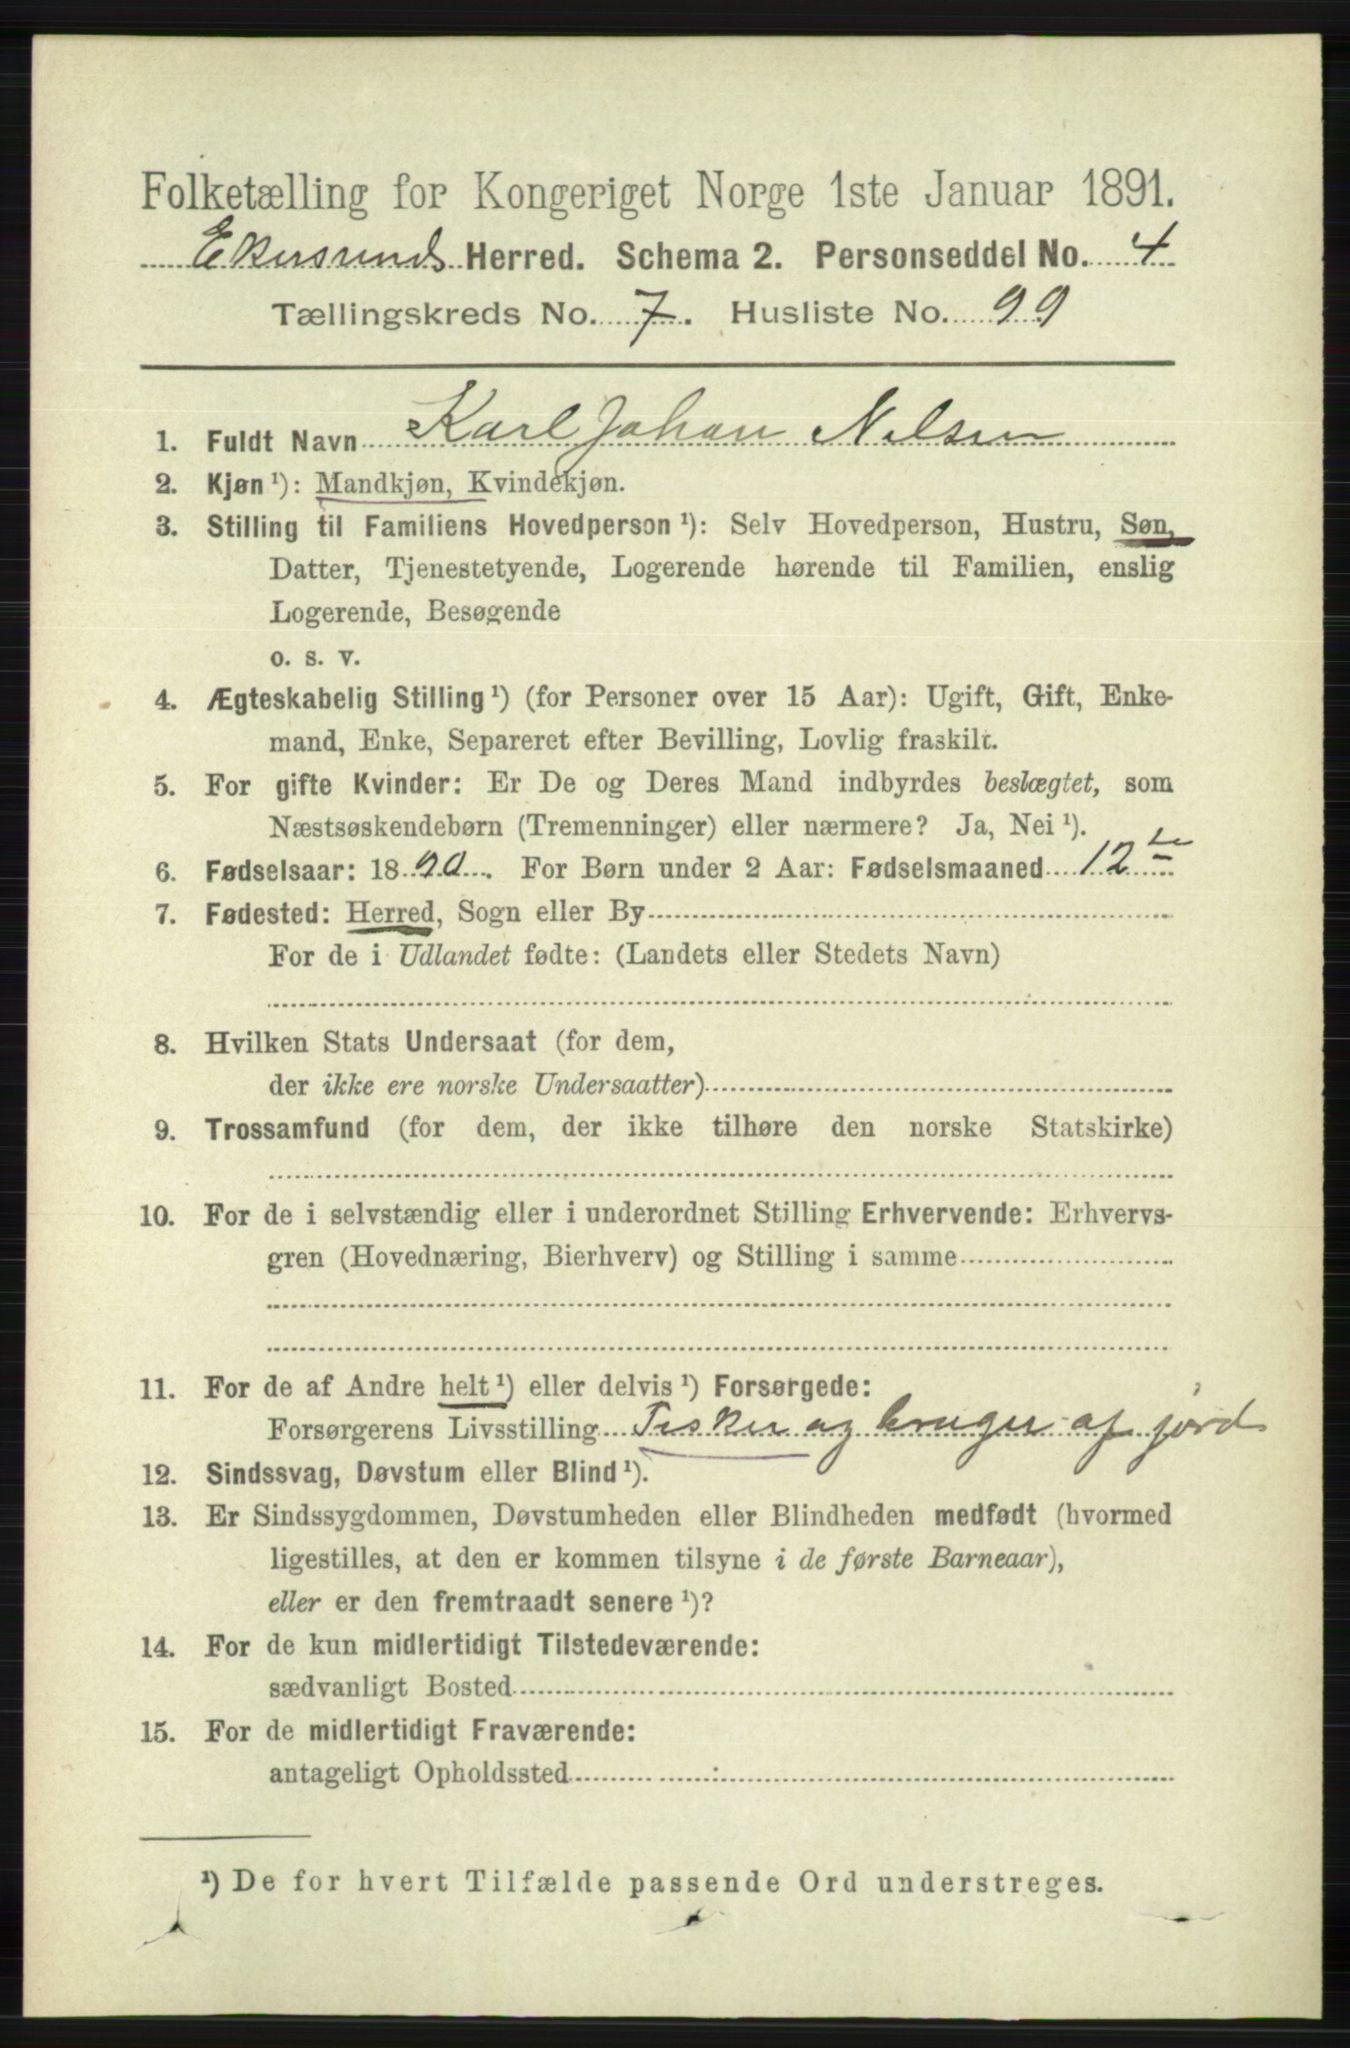 Folketælling for Kongeriget Norge 1ste Januar 1891.
Ekersunds Herred. Schema 2. Personseddel No. 4
Tællingskreds No. 7. Husliste No. 99
1. Fuldt Navn Karl Johan Nilsen
2. Kjøn ¹): Mandkjøn, Kvindekjøn.
3. Stilling til Familiens Hovedperson ¹): Selv Hovedperson, Hustru, Søn,
Datter, Tjenestetyende, Logerende hørende til Familien, enslig
Logerende, Besøgende
o. s. v.
4. Ægteskabelig Stilling ¹) (for Personer over 15 Aar): Ugift, Gift, Enke-
mand, Enke, Separeret efter Bevilling, Lovlig fraskilt.
5. For gifte Kvinder: Er De og Deres Mand indbyrdes beslægtet, som
Næstsøskendebørn (Tremenninger) eller nærmere? Ja, Nei ¹).
6. Fødselsaar: 1890. For Børn under 2 Aar: Fødselsmaaned 12te
7. Fødested: Herred, Sogn eller By
For de i Udlandet fødte: (Landets eller Stedets Navn)
8. Hvilken Stats Undersaat (for dem,
der ikke ere norske Undersaatter)
9. Trossamfund (for dem, der ikke tilhøre den norske Statskirke)
10. For de i selvstændig eller i underordnet Stilling Erhvervende: Erhvervs-
gren (Hovednæring, Bierhverv) og Stilling i samme
11. For de af Andre helt ¹) eller delvis ¹) Forsørgede:
Forsørgerens Livsstilling Fisker og bruger af jord
12. Sindssvag, Døvstum eller Blind ¹).
13. Er Sindssygdommen, Døvstumheden eller Blindheden medfødt (hvormed
ligestilles, at den er kommen tilsyne i de første Barneaar),
eller er den fremtraadt senere ¹)?
14. For de kun midlertidigt Tilstedeværende:
sædvanligt Bosted
15. For de midlertidigt Fraværende:
antageligt Opholdssted
¹) De for hvert Tilfælde passende Ord understreges.